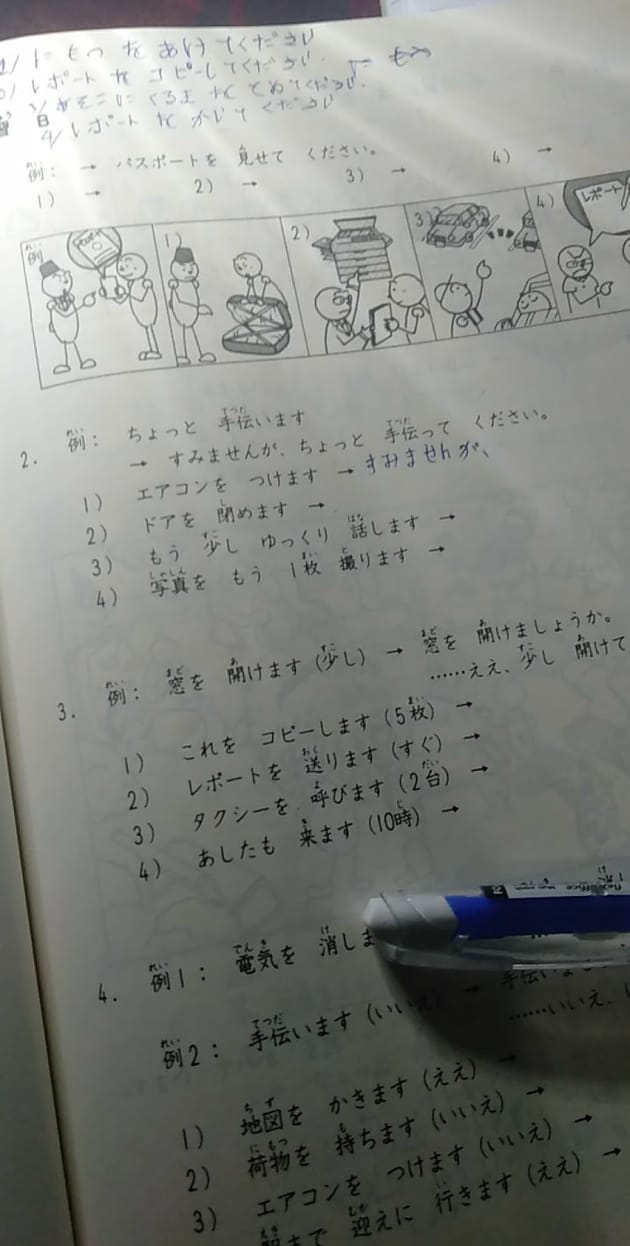 1/ にもつ を あけ てください
2/ レポート を コピーしてください.
3/ あそこに くるま を とめてください.
4/ レポート を かいて ください
例： → パスポートを 見せて ください。
1） → 2） → 3） → 4） →
例 1） 2） 3） 4） レポート
2. 例： ちょっと 手伝います
→ すみませんが、ちょっと 手伝って ください。
1） エアコンを つけます → すみませんが、
2） ドアを 閉めます →
3） もう 少し ゆっくり 話します →
4） 写真を もう 1枚 撮ります →
3. 例： 窓を 開けます（少し） → 窓を 開けましょうか。
……ええ、少し 開けて
1） これを コピーします（5枚） →
2） レポートを 送ります（すぐ） →
3） タクシーを 呼びます（2台） →
4） あしたも 来ます（10時） →
4. 例1： 電気を 消しま
例2： 手伝います（いいえ） → 手伝いまし
……いいえ、
1） 地図を かきます（ええ） →
2） 荷物を 持ちます（いいえ） →
3） エアコンを つけます（いいえ） →
まで 迎えに 行きます（ええ） →